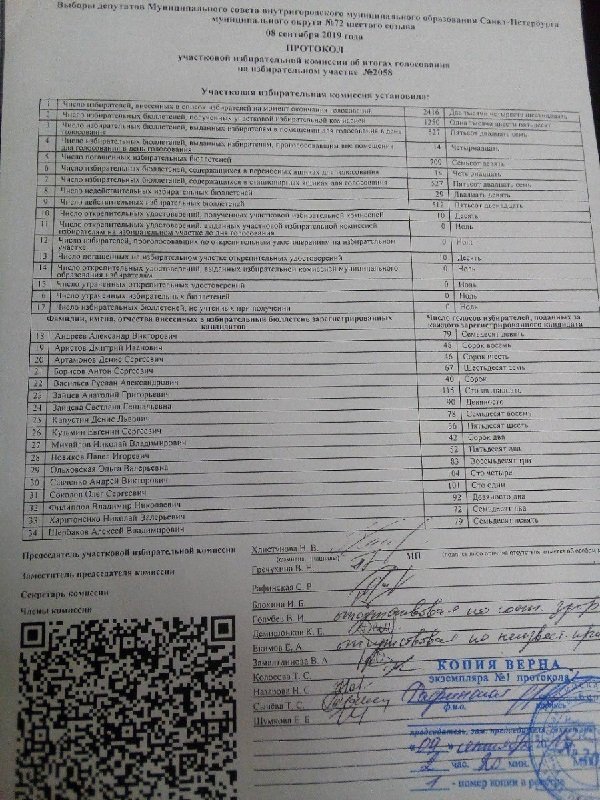 Выборы депутатов Муниципального совета внутригородского муниципального образования Санкт-Петербурга
муниципального округа №72 шестого созыва
08 сентября 2019 года
ПРОТОКОЛ
участковой избирательной комиссии об итогах голосования
на избирательном участке №2058
Участковая избирательная комиссия установила:
1 Число избирателей, внесенных в список избирателей на момент окончания голосования 2416
2 Число избирательных бюллетеней, полученных участковой избирательной комиссией 1250
3 Число избирательных бюллетеней, выданных избирателям в помещении для голосования в день
голосования 527 Пятьсот двадцать семь
4 Число избирательных бюллетеней, выданных избирателям, проголосовавшим вне помещения
для голосования в день голосования 14 Четырнадцать
5 Число погашенных избирательных бюллетеней 709 Семьсот девять
6 Число избирательных бюллетеней, содержащихся в переносных ящиках для голосования 14 Четырнадцать
7 Число избирательных бюллетеней, содержащихся в стационарных ящиках для голосования 527 Пятьсот двадцать семь
8 Число недействительных избирательных бюллетеней 29 Двадцать девять
9 Число действительных избирательных бюллетеней 512 Пятьсот двенадцать
10 Число открепительных удостоверений, полученных участковой избирательной комиссией 10 Десять
11 Число открепительных удостоверений, выданных участковой избирательной комиссией
избирателям на избирательном участке до дня голосования 0 Ноль
12 Число избирателей, проголосовавших по открепительным удостоверениям на избирательном
участке 0 Ноль
Число погашенных на избирательном участке открепительных удостоверений Десять
14 Число открепительных удостоверений, выданных избирательной комиссией муниципального
образования избирателям 0 Ноль
15 Число утраченных открепительных удостоверений 0 Ноль
Число утраченных избирательных бюллетеней 0 Ноль
17 Число избирательных бюллетеней, не учтенных при получении 0 Ноль
Фамилии, имена, отчества внесенных в избирательный бюллетень зарегистрированных
кандидатов
Число голосов избирателей, поданных за
каждого зарегистрированного кандидата
18 Андреев Александр Викторович 79 Семьдесят девять
19 Аристов Дмитрий Иванович 48 Сорок восемь
20 Артамонов Денис Сергеевич 46 Сорок шесть
21 Борисов Антон Сергеевич 67 Шестьдесят семь
22 Васильев Руслан Александрович 40 Сорок
23 Зайцев Анатолий Григорьевич
24 Зайцева Светлана Геннадьевна 90 Девяносто
25 Капустин Денис Львович 78 Семьдесят восемь
26 Кузьмин Евгений Сергеевич 56 Пятьдесят шесть
27 Михайлов Николай Владимирович 42 Сорок два
28 Новиков Павел Игоревич 52 Пятьдесят два
29 Ольховская Эльга Валерьевна 83 Восемьдесят три
30 Андрей Викторович 104 Сто четыре
31 Соколов Олег Сергеевич 101 Сто один
32 Филиппов Владимир Николаевич 92 Девяносто два
33 Харитоненко Николай Валерьевич 72 Семьдесят два
34 Щербаков Алексей Владимирович 79 Семьдесят девять
Председатель участковой избирательной комиссии Н. В. МП
Заместитель председателя комиссии В.
Секретарь комиссии Рафинская С. Р.
Члены комиссии Блохина И. Б.
Голубев В. И.
К. Е.
Е. А.
В. А.
Т. С.
Назарова Н. С.
Т. С.
Шумкова Е. Е.
отсутствовал по
отсутствовал по неизвест.
КОПИЯ ВЕРНА
экземпляра №1 протокола
Рафинская
ф.и.о. подпись
«09» сентября 20
2 час. 20 мин.
1 - номер копии в реестре